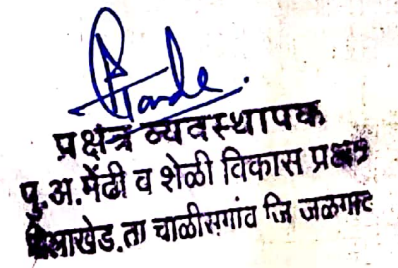 प्रक्षेत्र व्यवस्थापक
पु.अ.मेंढी व शेळी विकास प्रक्षेत्र
बिलाखेड.ता चाळीसगांव जि जळगाव